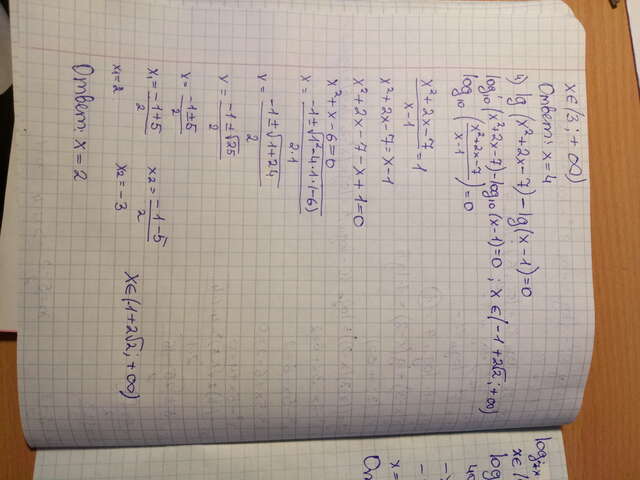 x∈(3; +∞)
Ответ: x=4
4) lg (x²+2x-7) - lg(x-1)=0
log₁₀ (x²+2x-7)-log₁₀ (x-1)=0 ; x∈(-1+2√2; +∞)
log₁₀ ((x²+2x-7)/(x-1))=0
(x²+2x-7)/(x-1)=1
x²+2x-7=x-1
x²+2x-7-x+1=0
x²+x-6=0
x=(-1±√(1²-4·1·(-6)))/(2·1)
x=(-1±√(1+24))/2
x=(-1±√25)/2
x=(-1±5)/2
x₁=(-1+5)/2 x₂=(-1-5)/2
x₁=2 x₂=-3 x∈(-1+2√2; +∞)
Ответ: x=2